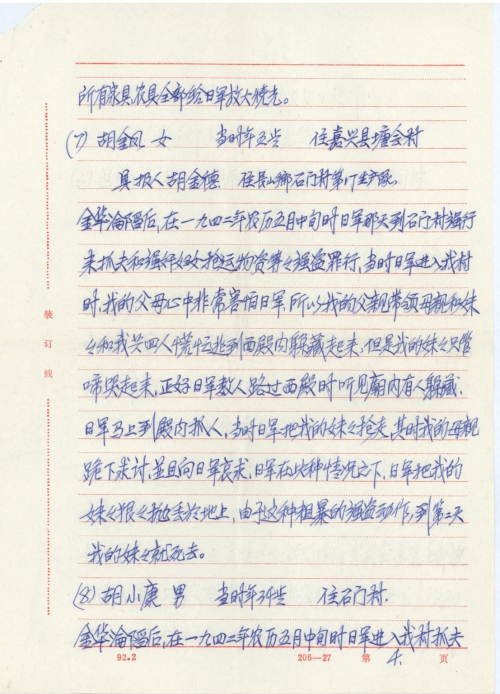 所有家具农具全部给日军放火烧光。
(7) 胡金凤 女 当时年五岁 住嘉兴县坛会村
具报人胡金德 住长山乡石门村第17生产队
金华沦陷后,在一九四二年农历五月中旬时日军那天到石门村强行
来抓去和强奸妇女抢运物资等々强盗罪行,当时日军进入我村
时,我的父母心中非常害怕日军,所以我的父亲带领母亲和妹
々和我共四人慌忙逃到西殿内躲藏起来,但是我的妹々只管
啼哭起来,正好日军数人路过西殿时听见庙内有人躲藏,
日军马上到殿内抓人,当时日军把我的妹々抢走,其时我的母亲
跪下求讨,并且向日军哀求,日军在此种情况之下,日军把我的
妹々狠々抛丢於地上,由于这种粗暴的强盗动作,到第二天
我的妹々就死去。
(8) 胡小康 男 当时年34岁 住石门村.
金华沦陷后,在一九四二年农历五月中旬时日军进入我村抓去
装订线
92.2 206—27 第 4. 页